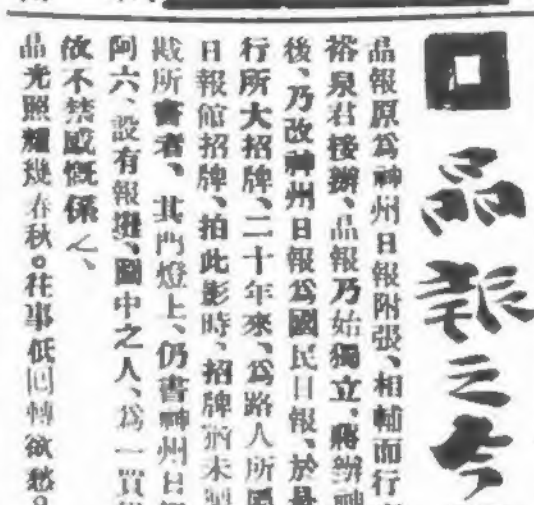 晶報之今
晶報原爲神州日報附張、相輔而行
裕泉君接辦、晶報乃始獨立、蔣辦神
後、乃改神州日報爲國民日報、於是
行所大招牌、二十年來、爲路人所屬
日報館招牌、拍此影時、招牌猶未
戡所書者、其門燈上、仍書神州日報
阿六、設有報攤、圖中之人、爲一買
故不禁感慨係之、
晶光照耀幾春秋。往事低回轉欲愁。